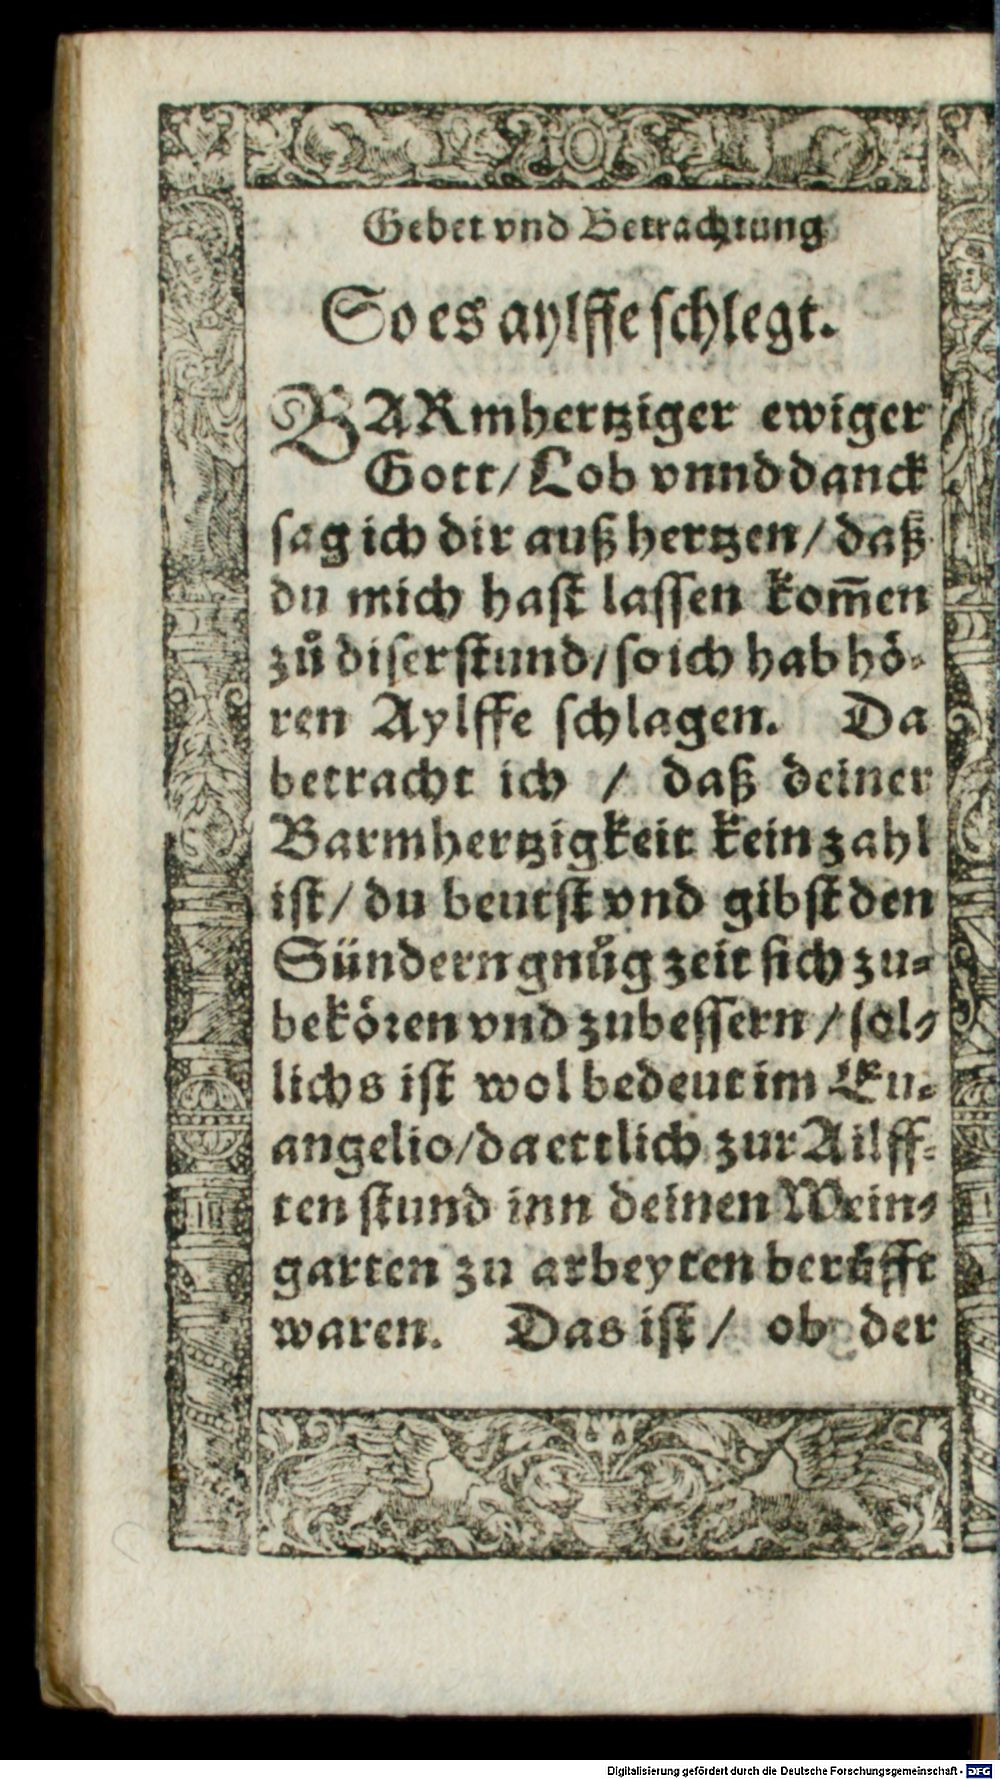 Gebet vnd Betrachtung
So es aylffe schlegt.
BARmhertziger ewiger
Gott/ Lob vnnd danck
sag ich dir auß hertzen/ daß
du mich hast lassen kom̃en
zů diser stund/ so ich hab hö-
ren Aylffe schlagen. Da
betracht ich / daß deiner
Barmhertzigkeit kein zahl
ist/ du beutst vnd gibst den
Sündern gnůg zeit sich zu-
bekören vnd zubessern / sol-
lichs ist wol bedeut im Eu-
angelio/ da ettlich zur Ailff-
ten stund inn deinen Wein-
garten zu arbeyten berüfft
waren. Das ist / ob der
Digitalisierung gefördert durch die Deutsche Forschungsgemeinschaft - DFG